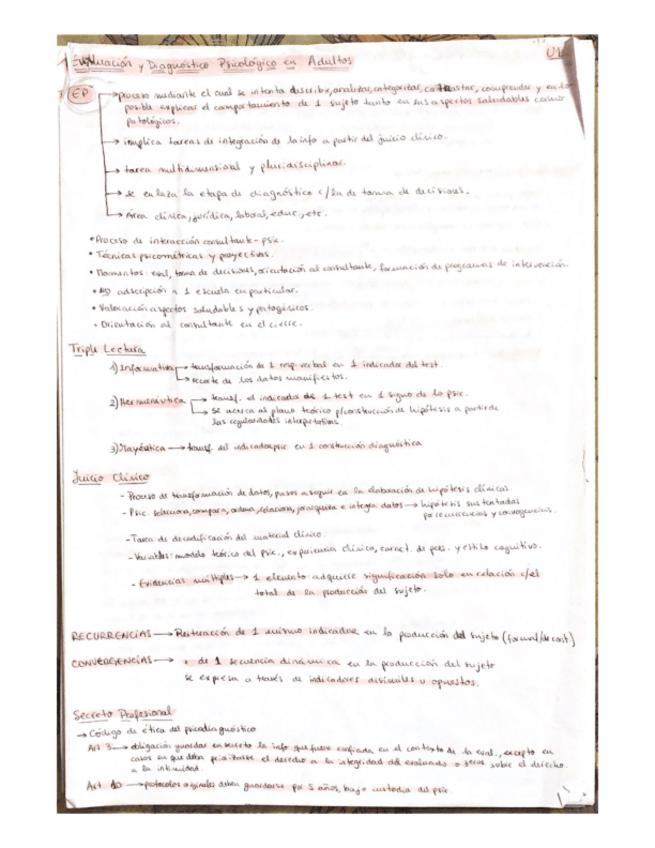 Evaluación y Diagnóstico Psicológico en Adultos U1
EP → proceso mediante el cual se intenta describir, analizar, categorizar, contrastar, comprender y en lo
posible explicar el comportamiento de 1 sujeto tanto en sus aspectos saludables como
patológicos.
→ implica tareas de integración de la info a partir del juicio clínico.
→ tarea multidimensional y pluridisciplinar.
→ se enlaza la etapa de diagnóstico c/ la de toma de decisiones.
→ Área clínica, jurídica, laboral, educ., etc.
• Proceso de interacción consultante - psic.
• Técnicas psicométricas y proyectivas.
• Momentos: eval, toma de decisiones, orientación al consultante, formación de programas de intervención.
• adscripción a 1 escuela en particular.
• Valoración aspectos saludables y patogénicos.
• Orientación al consultante en el cierre.
Triple Lectura
1) Informativa → transformación de 1 resp verbal en 1 indicador del test.
→ recorte de los datos manifiestos.
2) Hermenéutica → transf. el indicador de 1 test en 1 signo de lo psic.
→ se acerca al plano teórico p/construcción de hipótesis a partir de
las regularidades interpretativas.
3) Mayéutica → transf. del indicador psic en 1 construcción diagnóstica
Juicio Clínico
- Proceso de transformación de datos, pasos a seguir en la elaboración de hipótesis clínicas.
- Psic. selecciona, compara, ordena, relaciona, jerarquiza e integra datos → hipótesis sustentadas
por recurrencias y convergencias.
- Tarea de decodificación del material clínico.
- Variables: modelo teórico del psic., experiencia clínica, caract. de pers. y estilo cognitivo.
- Evidencias múltiples → 1 elemento adquiere significación solo en relación c/el
total de la producción del sujeto.
RECURRENCIAS → Reiteración de 1 mismo indicador en la producción del sujeto (formal/de cont)
CONVERGENCIAS → • de 1 secuencia dinámica en la producción del sujeto
se expresa a través de indicadores disímiles u opuestos.
Secreto Profesional
→ Código de ética del psicodiagnóstico
Art 3 → obligación guardar en secreto la info que fuere confiada en el contexto de la eval., excepto en
casos en que deba priorizarse el derecho a la integridad del evaluado o 3eros sobre el derecho
a la intimidad.
Art 10 → protocolos originales deben guardarse por 5 años, bajo custodia del psic.